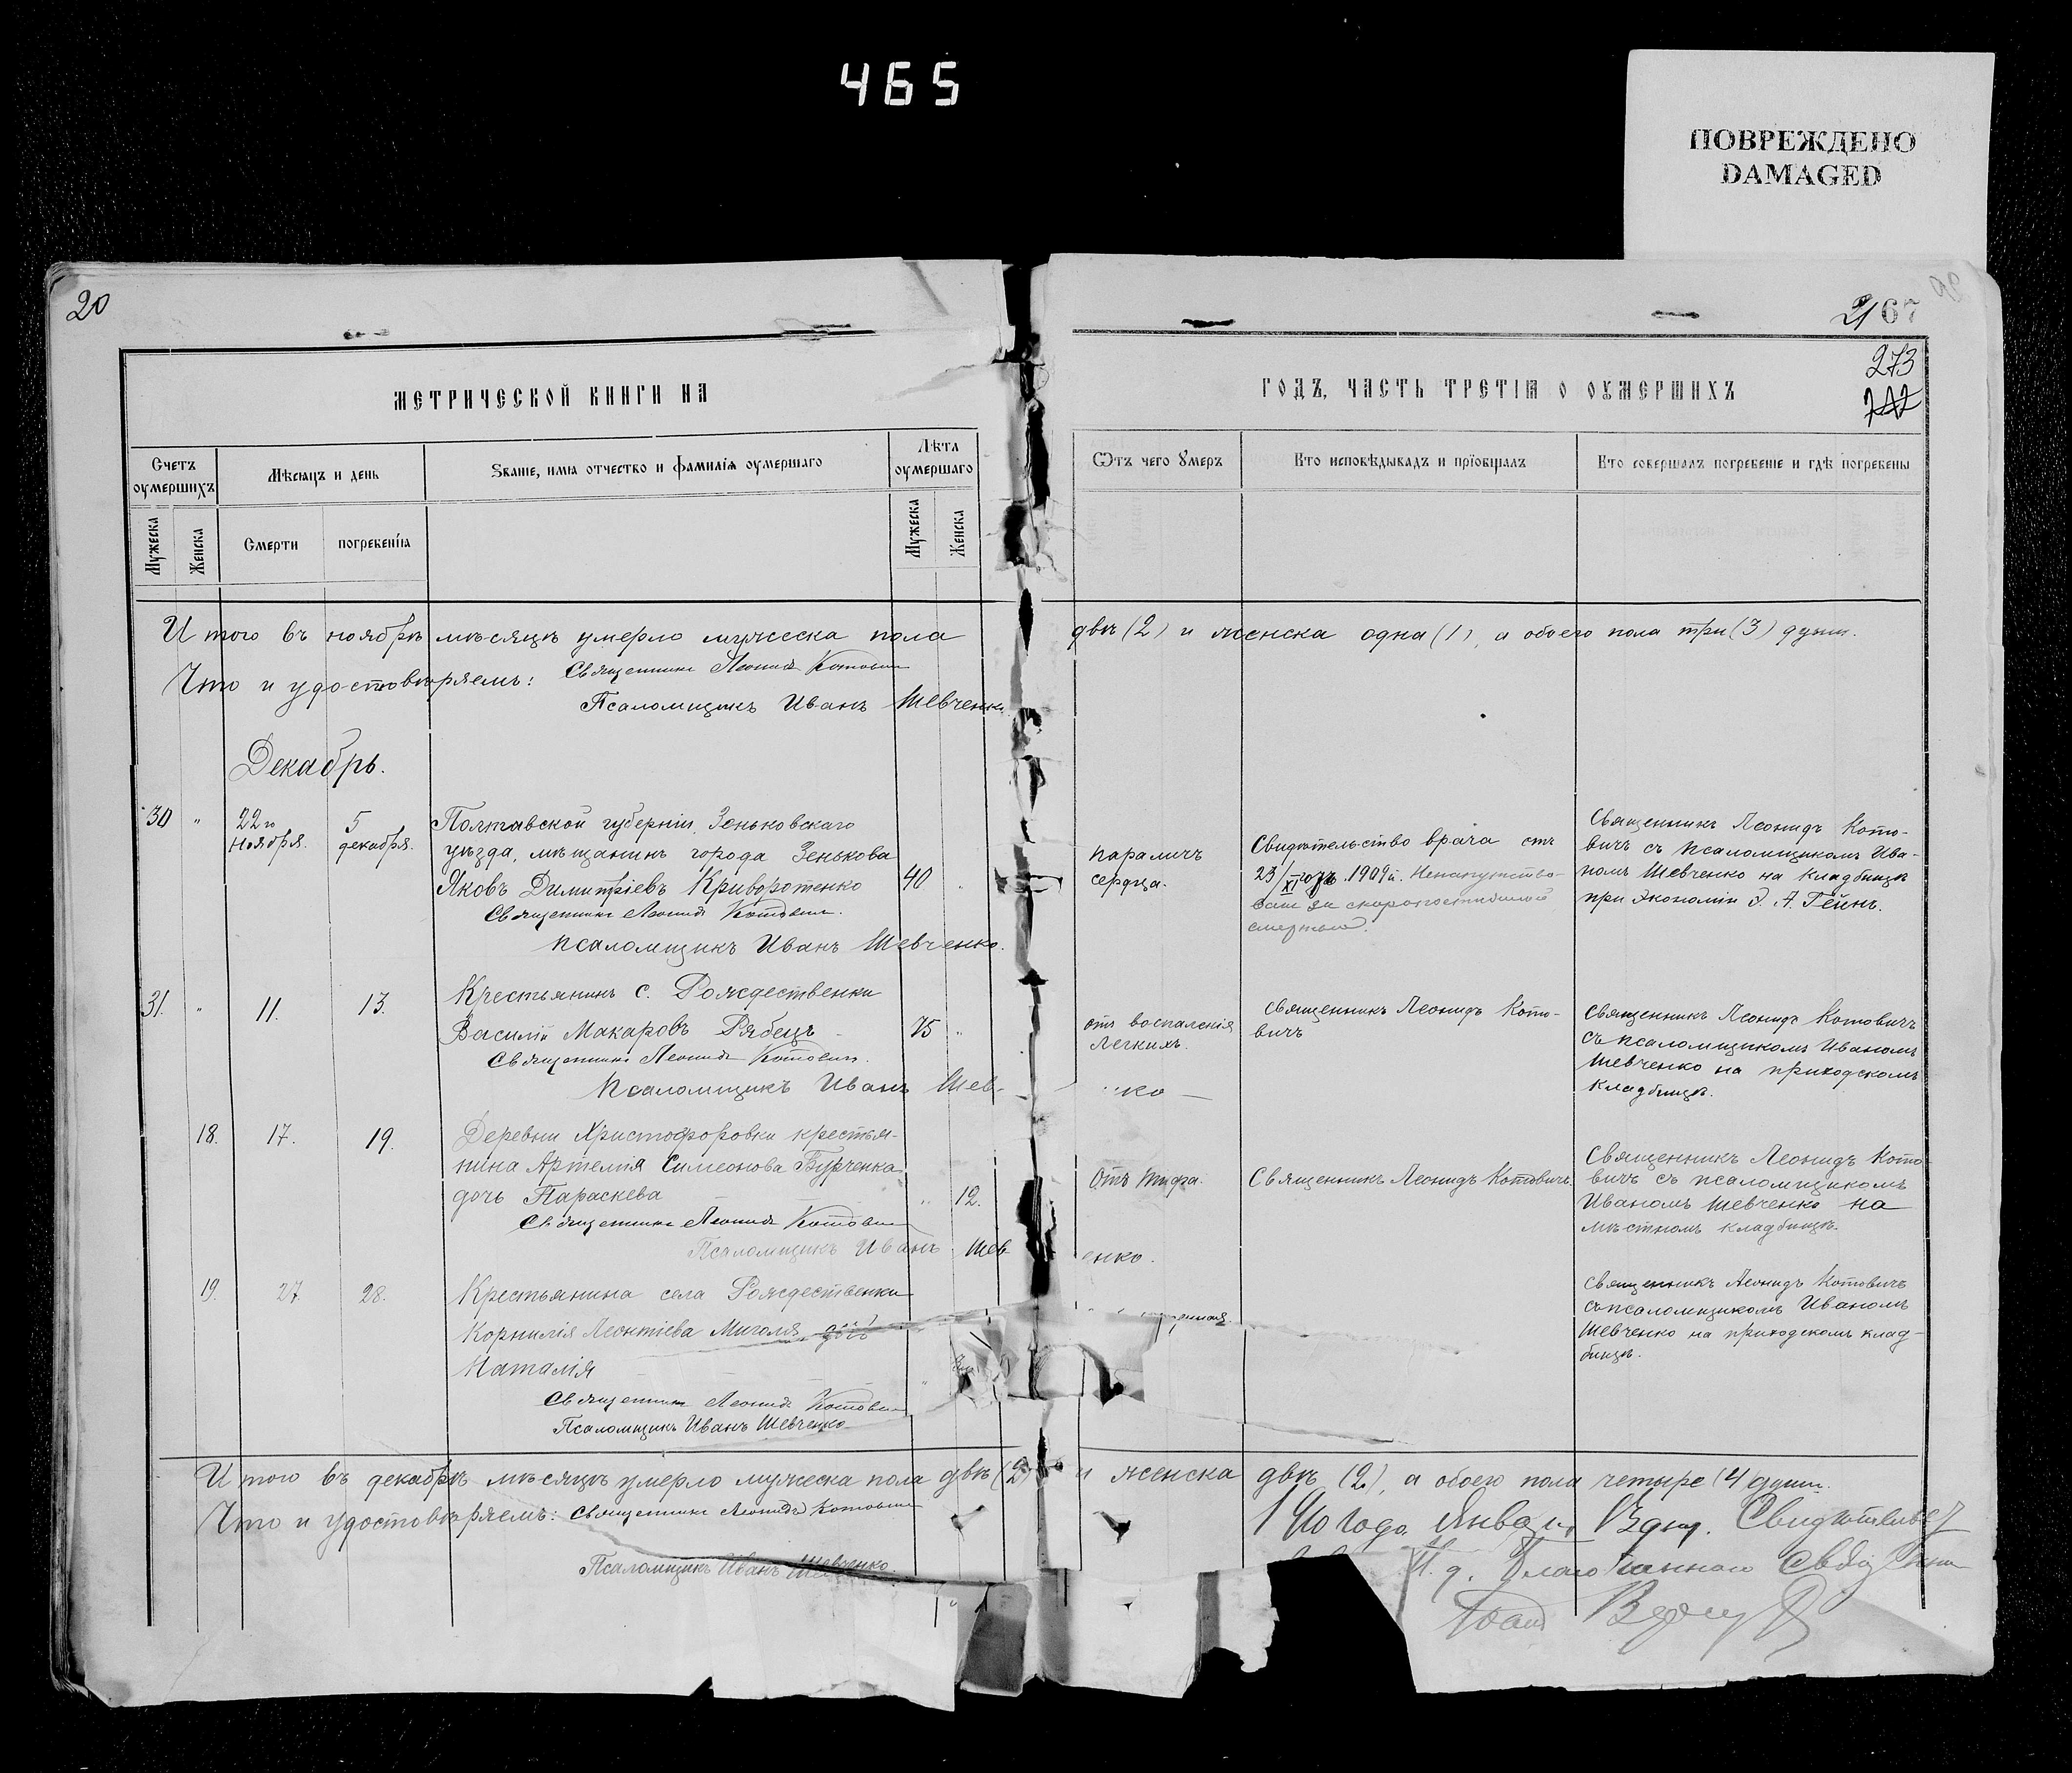 465
ПОВРЕЖДЕНО
DAMAGED
20
21 67
273
742
МЕТРИЧЕСКОЙ КНИГИ НА
ГОДЪ, ЧАСТЬ ТРЕТІѦ О ОУМЕРШИХЪ
Счетъ оумершихъ
Мѣсяцъ и день
Званіе, имѧ отчество и фамилія оумершаго
Лѣта оумершаго
Ѿтъ чего Умеръ
Кто исповѣдывадъ и пріобщалъ
Кто совершалъ погребеніе и гдѣ погребены
Мужеска
Женска
Смерти
погребенія
Мужеска
Женска
Итого въ ноябрѣ мѣсяцѣ умерло мужеска пола двѣ (2) и женска одна (1), а обоего пола три (3) души.
Что и удостовѣряемъ: Священникъ Леонидъ Котович
Псаломщикъ Иванъ Шевченко
Декабрь.
30 " 22го ноября. 5 декабря.
Полтавской губерніи, Зеньковскаго
уѣзда, мѣщанинъ города Зенькова
Яковъ Димитріевъ Криворотенко 40 "
Священникъ Леонидъ Котович.
Псаломщикъ Иванъ Шевченко.
параличъ
сердца.
Свидѣтельство врача отъ
23/XI года 1909 г. Ненапутство-
ван за скоропостижной
смертью.
Священникъ Леонидъ Кото-
вичъ съ псаломщикомъ Ива-
номъ Шевченко на кладбищѣ
при экономіи Э. А. Гейнъ.
31. " 11. 13.
Крестьянинъ с. Рождественки
Василій Макаровъ Рябецъ 75 "
Священникъ Леонидъ Котович.
Псаломщикъ Иванъ Шев-
ко
отъ воспаленія
легкихъ.
Священникъ Леонидъ Кото-
вичъ
Священникъ Леонидъ Котовичъ
съ псаломщикомъ Иваномъ
Шевченко на приходскомъ
кладбищѣ.
18. 17. 19.
Деревни Христофоровки крестья-
нина Артемія Симеонова Бурченка
дочь Параскева " 12.
Священникъ Леонидъ Котович
Псаломщикъ Иванъ Шев
енко.
Отъ тифа.
Священникъ Леонидъ Котовичъ.
Священникъ Леонидъ Кото
вичъ съ псаломщикомъ
Иваномъ Шевченко на
мѣстномъ кладбищѣ.
19. 27. 28.
Крестьянина села Рождественки
Корнилія Леонтіева Миголя дочь
Наталія
Священникъ Леонидъ Котович
Псаломщикъ Иванъ Шевченко
Священникъ Леонидъ Котовичъ
съ псаломщикомъ Иваномъ
Шевченко на приходскомъ клад-
бищѣ.
Итого въ декабрѣ мѣсяцѣ умерло мужеска пола двѣ (2) и женска двѣ (2), а обоего пола четыре (4 души.
Что и удостовѣряемъ: Священникъ Леонидъ Котович
Псаломщикъ Иванъ Шевченко.
1910 года Января
И. д. Благочиннаго